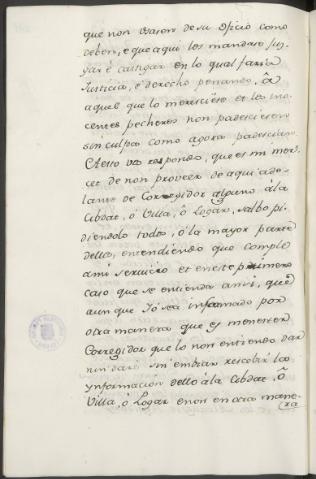 que non usaren de su oficio como
deben, e que aqui los mandare juz-
gar e castigar en lo qual faria
Justicia, e derecho penando, â
aquel que lo meresciere et los ino-
centes pecheros non padescieren
sin culpa como agora padescian.
A esto vos respondo, que es mi mer-
cet de non proveer de aqui ade-
lante de Corregidor alguno â la
Cibdat, ô Villa, ô Logar, salbo pi-
diendolo todos, ô la mayor parte
della, entendiendo que cumple
a mi servicio et en este primero
caso que se entienda ansi, quê
aun que Yo sea informado por
otra manera que es menester
Corregidor que lo non entiendo dar
nin dare sin embiar rescebir la
ynformacion dello â la Cibdat, ô
Villa, ô Logar e non en otra mane-
ra